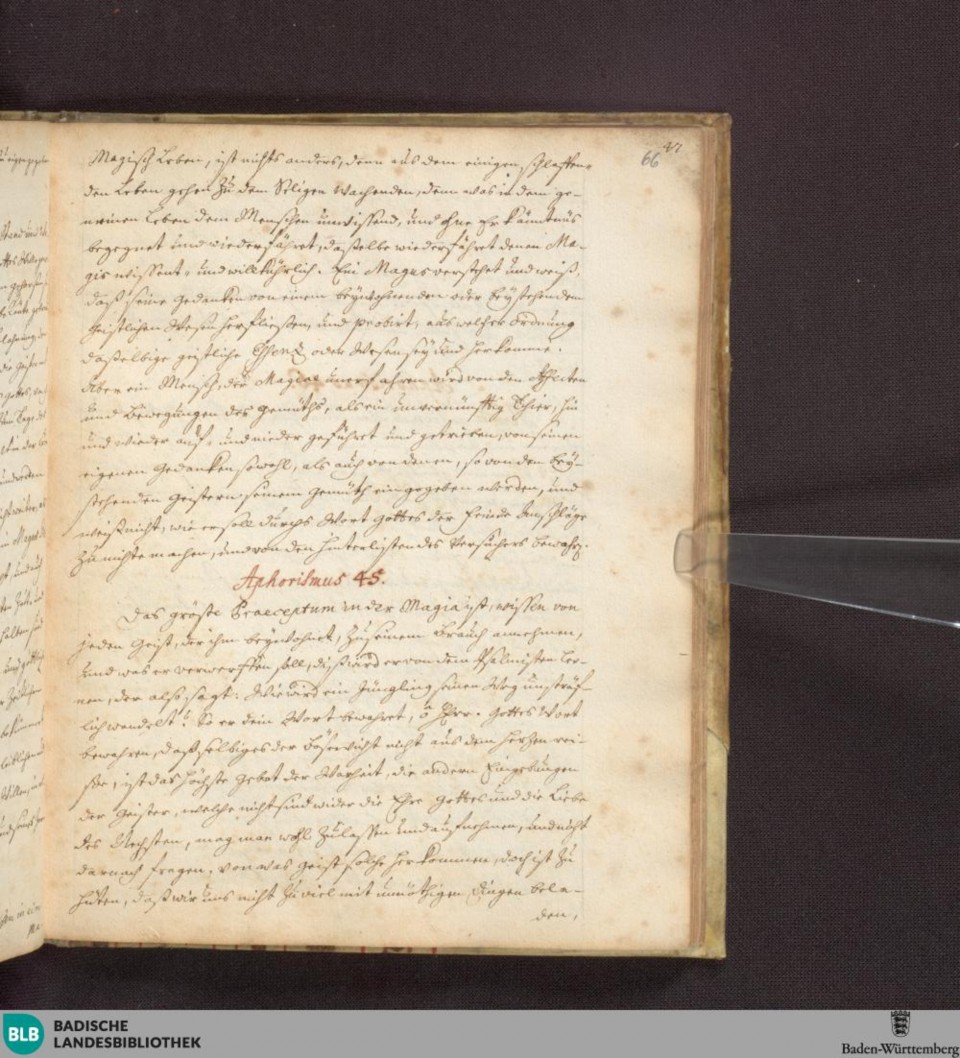 47
66
Magisch Leben, ist nichts anders, denn aus dem einigen, schlaffen-
den Leben gehen zu dem Seligen wachenden, denn was in dem ge-
meinen Leben dem Menschen unwissend, und ohne Erkäntnüs
begegnet und wiederfähret, dasselbe wiederfähret denen Ma-
gis wissent- und willkührlich. Ein Magus verstehet und weiß,
daß seine Gedanken von einem beywohnenden oder beystehenden
geistlichen Wesen herfließen, und probirt, aus welcher Ordnung
dasselbige geistliche Essenz oder Wesen sey und herkomme.
Aber ein Mensch, der Magiae unerfahren wird von den Affecten
und Bewegungen des Gemüths, als ein unvernünfftig Thier, hin
und wieder auf- und nieder geführet und getrieben, von seinen
eigenen Gedanken sowohl, als auch von denen, so von den bey-
stehenden Geistern seinem Gemüth eingegeben werden, und
weiß nicht, wie er soll durchs Wort Gottes der Feinde Anschläge
zu nichte machen, und von den hinterlisten des Versuchers bewahrn.
Aphorismus 45.
Das gröste Praeceptum in der Magia ist, wissen von
jeden Geist, der ihm beywohnet, zu seinem Brauch annehmen,
und was er verwerffen soll, diß wird er von dem Psalmisten ler-
nen, der also sagt: Wie wird ein Jüngling seinen Weg unsträf-
lich wandelt? So er dein Wort bewahret, ô Herr. Gottes Wort
bewahren, daß selbiges der Bösewicht nicht aus dem Herzen rei-
ße, ist das höchste Gebot der Warheit, die andern Eingebungen
der Geister, welche nicht sind wider die Ehre Gottes und die Liebe
des Nechsten, mag man wohl zulassen und aufnehmen, und nicht
darnach fragen, von was Geist solche herkommen, doch ist zu
hüten, daß wir uns nicht zu viel mit unnöthigen Dingen bela-
den,
BLB BADISCHE
LANDESBIBLIOTHEK
Baden-Württemberg